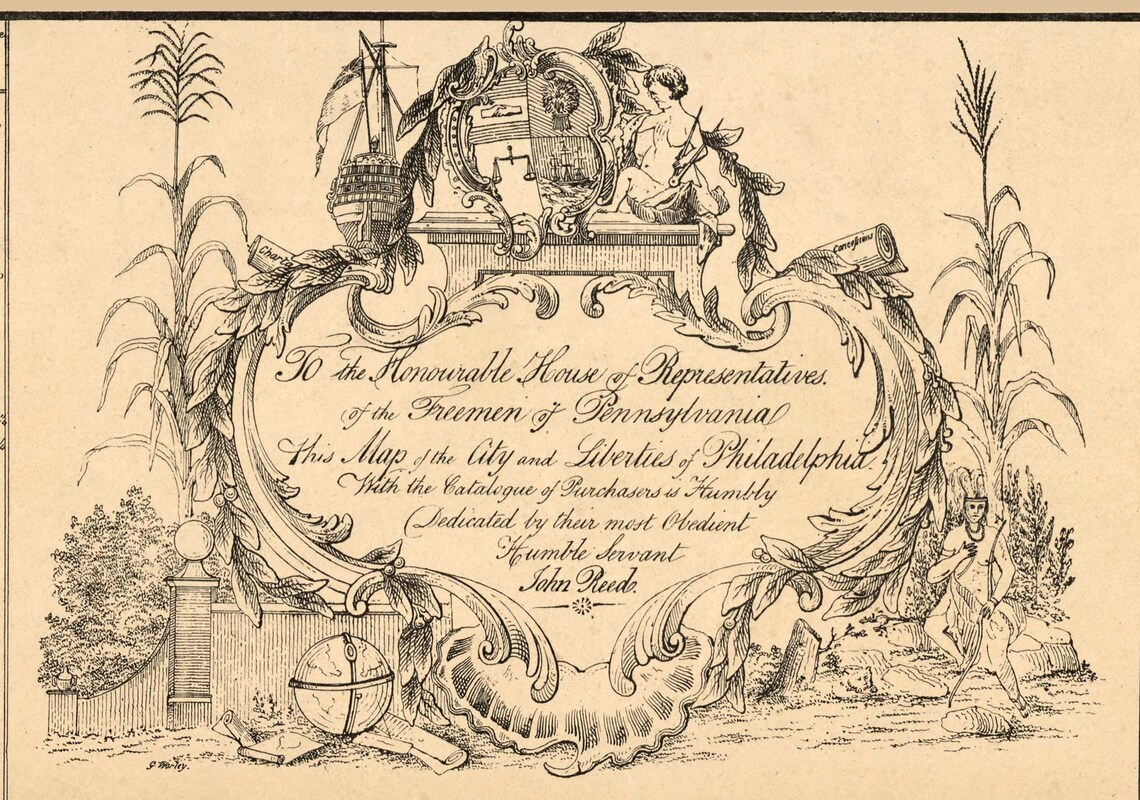 Charte
Concessions
TO the Honourable House of Representatives.
of the Freemen of Pennsylvania
This Map of the City and Liberties of Philadelphia.
With the Catalogue of Purchasers is Humbly
Dedicated by their most Obedient
Humble Servant
John Reed.